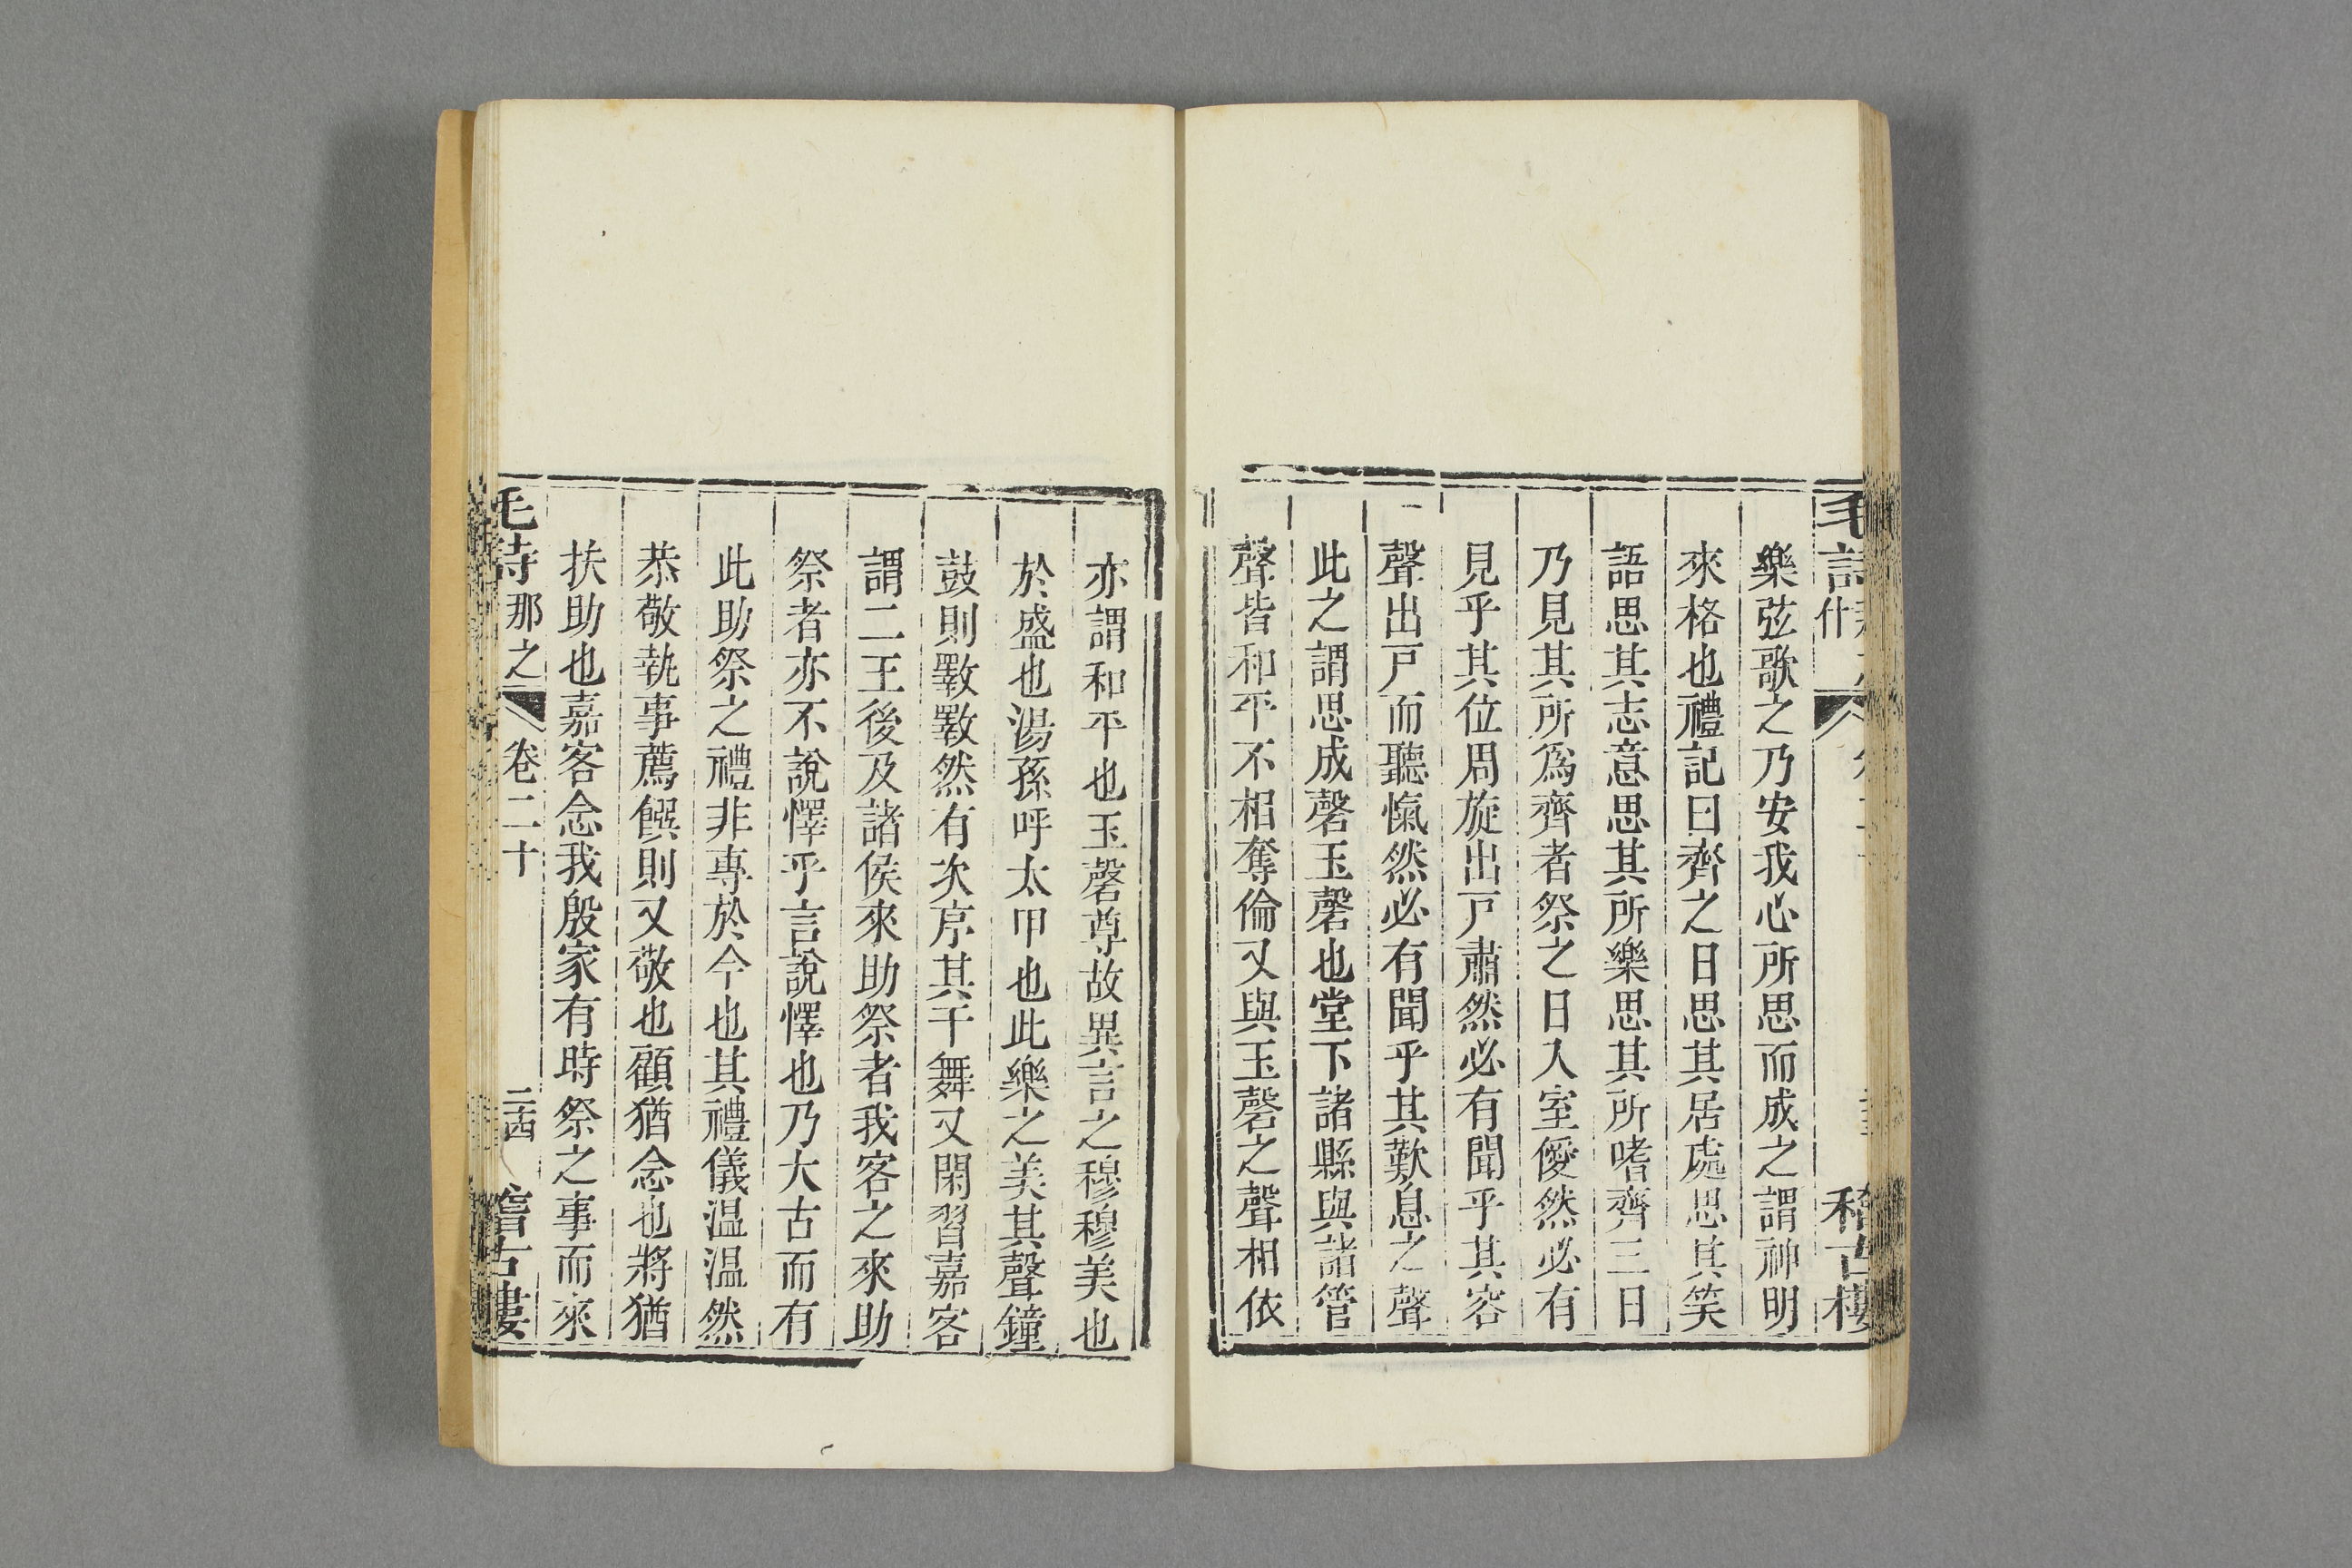 毛詩
什
稽古樓
樂弦歌之乃安我心所思而成之謂神明
來格也禮記曰齊之日思其居處思其笑
語思其志意思其所樂思其所嗜齊三日
乃見其所爲齊者祭之日入室僾然必有
見乎其位周旋出戸肅然必有聞乎其容
聲出戸而聽愾然必有聞乎其歎息之聲
此之謂思成磬玉磬也堂下諸縣與諸管
聲皆和平不相奪倫又與玉磬之聲相依
亦謂和平也玉磬尊故異言之穆穆美也
於盛也湯孫呼太甲也此樂之美其聲鐘
鼓則斁斁然有次序其干舞又閑習嘉客
謂二王後及諸侯來助祭者我客之來助
祭者亦不說懌乎言說懌也乃大古而有
此助祭之禮非專於今也其禮儀温温然
恭敬執事薦饌則又敬也顧猶念也將猶
扶助也嘉客念我殷家有時祭之事而來
毛詩 那之 卷二十 二四 稽古樓